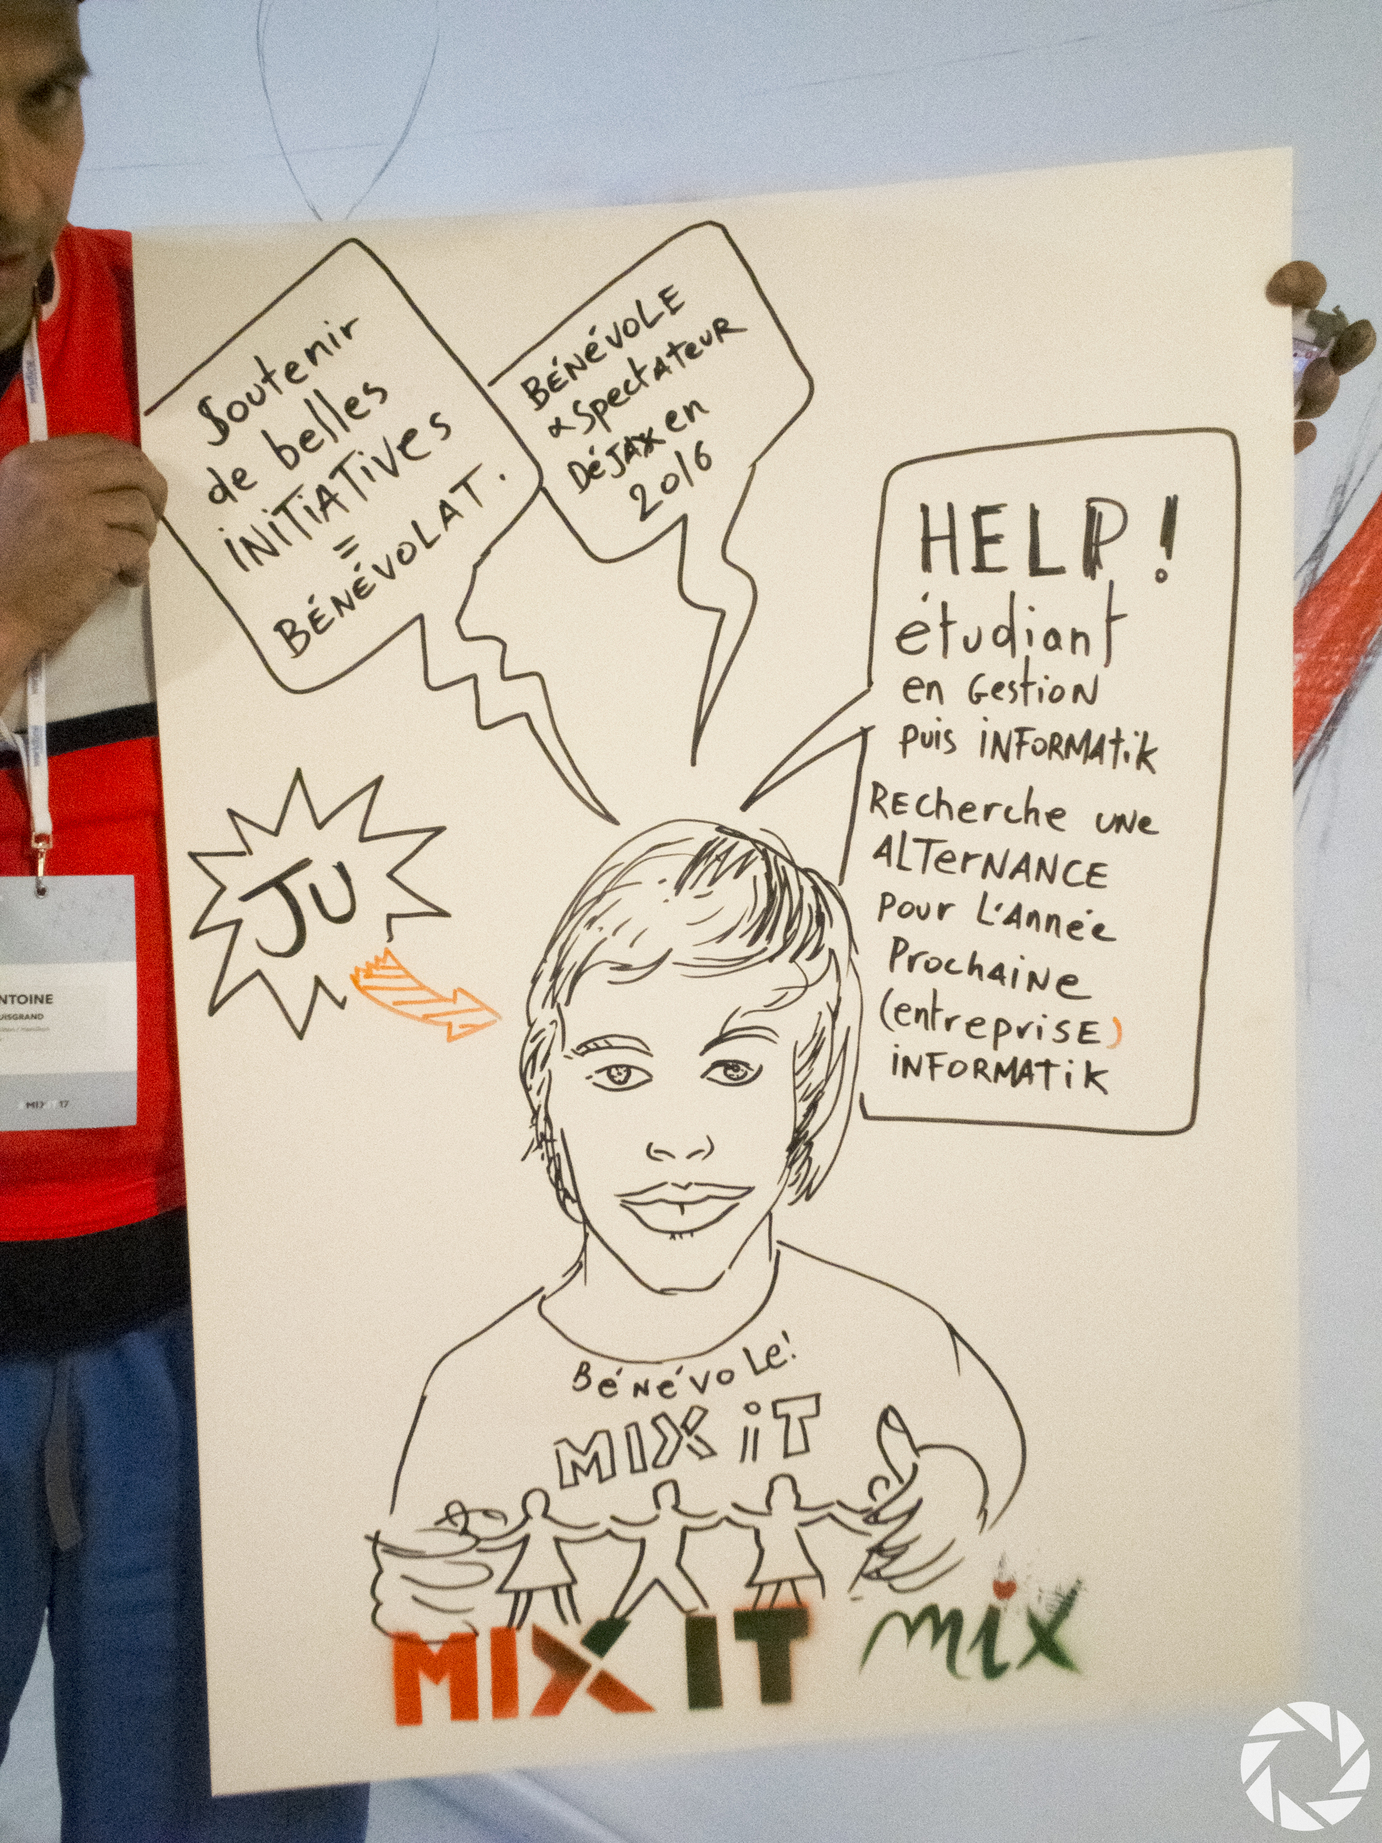 Soutenir
de belles
INITIATIVES
=
BÉNÉVOLAT.
BÉNÉVOLE
& Spectateur
DÉJÀ en
2016
HELP!
étudiant
en Gestion
puis INFORMATIK
Recherche UNE
ALTERNANCE
pour L'Année
Prochaine
(entreprise)
INFORMATIK
JU
BÉNÉVOLE!
MIX iT
MIX IT
mix
NTOINE
UISGRAND
MIX 17